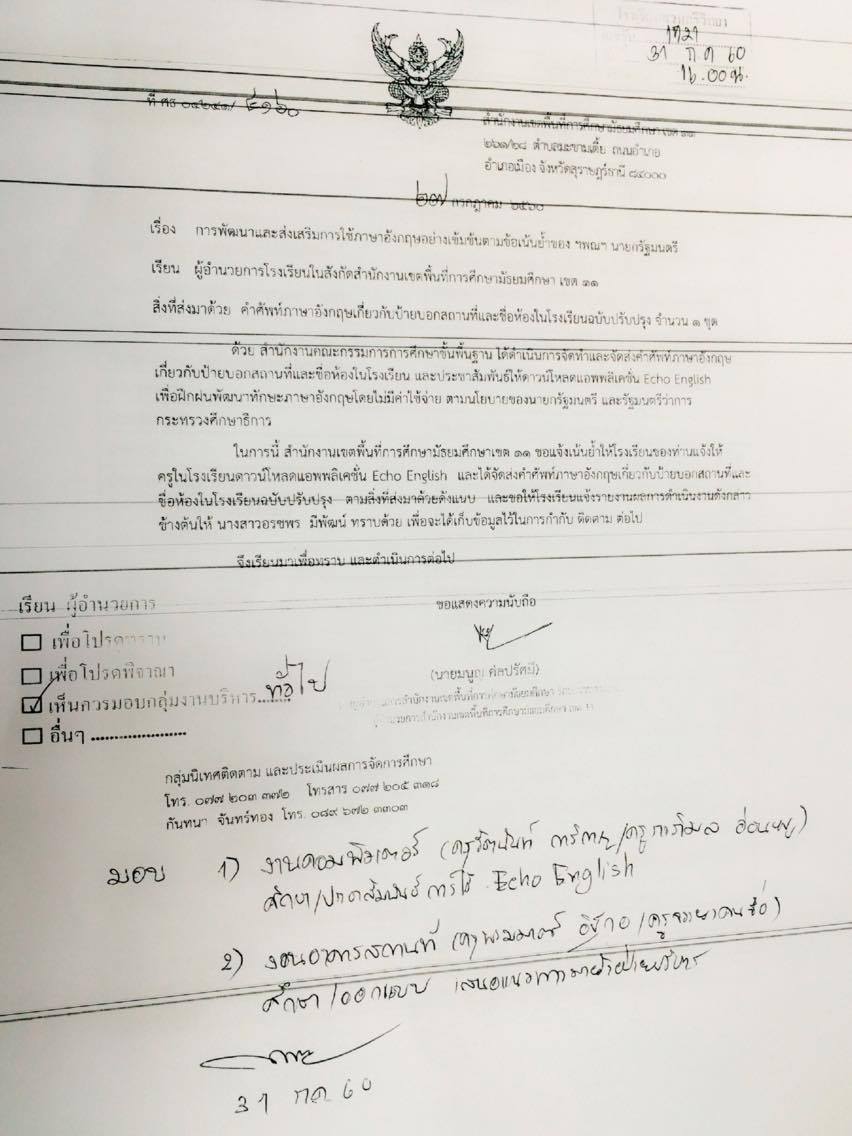 1721
31 ก ค 60
ที่ ศธ ๐๔๒๔๑/ ๔๑๖๐
สำนักงานเขตพื้นที่การศึกษามัธยมศึกษา เขต ๑๑
๒๖๑/๒๘ ตำบลมะขามเตี้ย ถนนอำเภอ
อำเภอเมือง จังหวัดสุราษฎร์ธานี ๘๔๐๐๐
๒๗ กรกฎาคม ๒๕๖๐
เรื่อง การพัฒนาและส่งเสริมการใช้ภาษาอังกฤษอย่างเข้มข้นตามข้อเน้นย้ำของ ฯพณฯ นายกรัฐมนตรี
เรียน ผู้อำนวยการโรงเรียนในสังกัดสำนักงานเขตพื้นที่การศึกษามัธยมศึกษา เขต ๑๑
สิ่งที่ส่งมาด้วย คำศัพท์ภาษาอังกฤษเกี่ยวกับป้ายบอกสถานที่และชื่อห้องในโรงเรียนฉบับปรับปรุง จำนวน ๑ ชุด
ด้วย สำนักงานคณะกรรมการการศึกษาขั้นพื้นฐาน ได้ดำเนินการจัดทำและจัดส่งคำศัพท์ภาษาอังกฤษ
เกี่ยวกับป้ายบอกสถานที่และชื่อห้องในโรงเรียน และประชาสัมพันธ์ให้ดาวน์โหลดแอพพลิเคชั่น Echo English
เพื่อฝึกฝนพัฒนาทักษะภาษาอังกฤษโดยไม่มีค่าใช้จ่าย ตามนโยบายของนายกรัฐมนตรี และรัฐมนตรีว่าการ
กระทรวงศึกษาธิการ
ในการนี้ สำนักงานเขตพื้นที่การศึกษามัธยมศึกษาเขต ๑๑ ขอแจ้งเน้นย้ำให้โรงเรียนของท่านแจ้งให้
ครูในโรงเรียนดาวน์โหลดแอพพลิเคชั่น Echo English และได้จัดส่งคำศัพท์ภาษาอังกฤษเกี่ยวกับป้ายบอกสถานที่และ
ชื่อห้องในโรงเรียนฉบับปรับปรุง ตามสิ่งที่ส่งมาด้วยดังแนบ และขอให้โรงเรียนแจ้งรายงานผลการดำเนินงานดังกล่าว
ข้างต้นให้ นางสาวอรชพร มีพัฒน์ ทราบด้วย เพื่อจะได้เก็บข้อมูลไว้ในการกำกับ ติดตาม ต่อไป
จึงเรียนมาเพื่อทราบ และดำเนินการต่อไป
เรียน ผู้อำนวยการ
ขอแสดงความนับถือ
เพื่อโปรดทราบ
เพื่อโปรดพิจาณา
(นายมนูญ
เห็นควรมอบกลุ่มงานบริหาร ทั่วไป
ผู้อำนวยการสำนักงานเขตพื้นที่การศึกษามัธยมศึกษา เขต 11
อื่นๆ ......................
กลุ่มนิเทศติดตาม และประเมินผลการจัดการศึกษา
โทร. ๐๗๗ ๒๐๓ ๓๗๒ โทรสาร ๐๗๗ ๒๐๕ ๓๑๘
กันทนา จันทร์ทอง โทร. ๐๘๙ ๖๗๒ ๓๓๐๓
มอบ 1) งานคอมพิวเตอร์
ศึกษา/ประชาสัมพันธ์ การใช้ Echo English
2) งานอาคารสถานที่
ศึกษา /ออกแบบ เสนอแนวทาง
31 กค 60